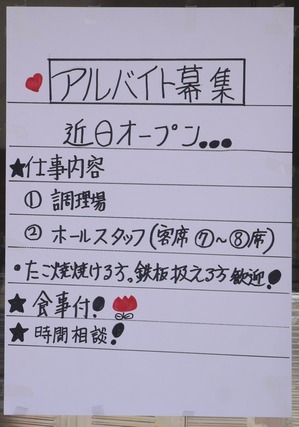 アルバイト募集
近日オープン...
★仕事内容
① 調理場
② ホールスタッフ(客席⑦〜⑧席)
・たこ焼焼ける方。鉄板扱える方歓迎!
★食事付!
★時間相談!